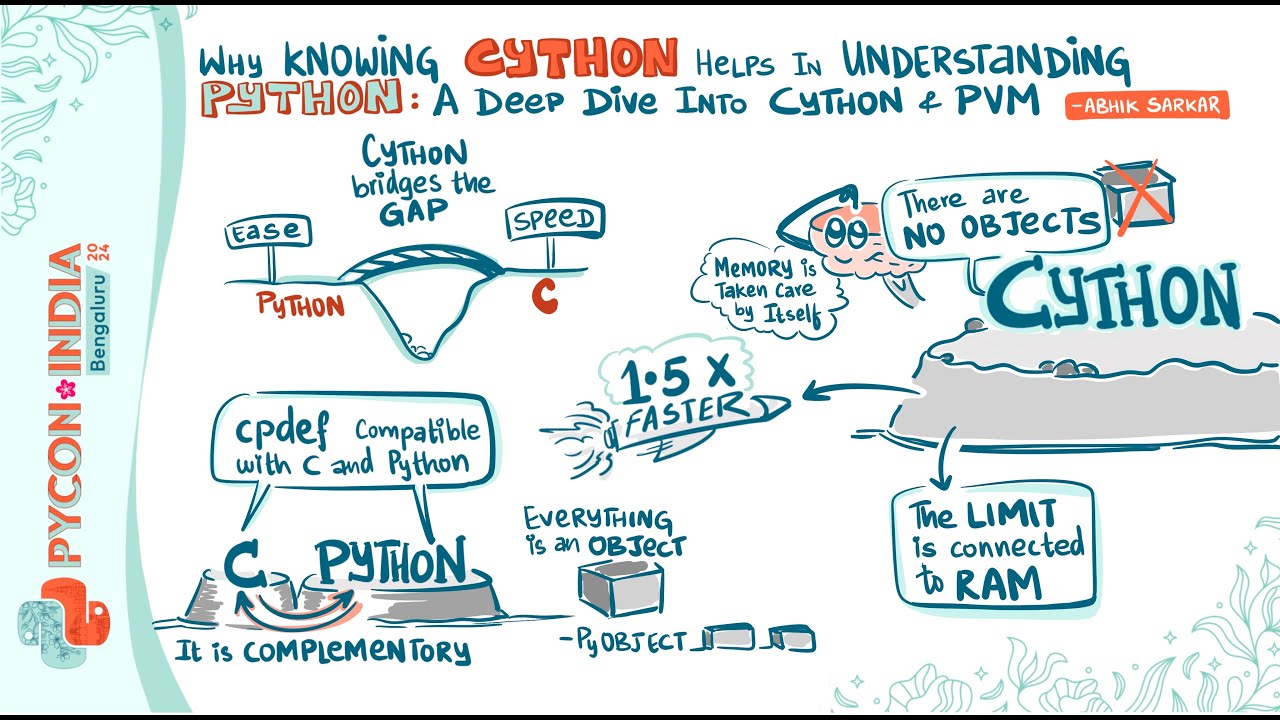 WHY KNOWING CYTHON HELPS IN UNDERSTANDING
PYTHON: A DEEP DIVE INTO CYTHON & PVM -ABHIK SARKAR
CYTHON
bridges the
GAP
EASE
SPEED
PYTHON
C
There are
NO OBJECTS
MEMORY is
Taken Care
by Itself
CYTHON
1.5 X
FASTER
cpdef Compatible
with C and Python
C PYTHON
It is COMPLEMENTORY
EVERYTHING
is an OBJECT
-PyOBJECT
The LIMIT
is connected
to RAM
PYCON INDIA
Bengaluru 2024